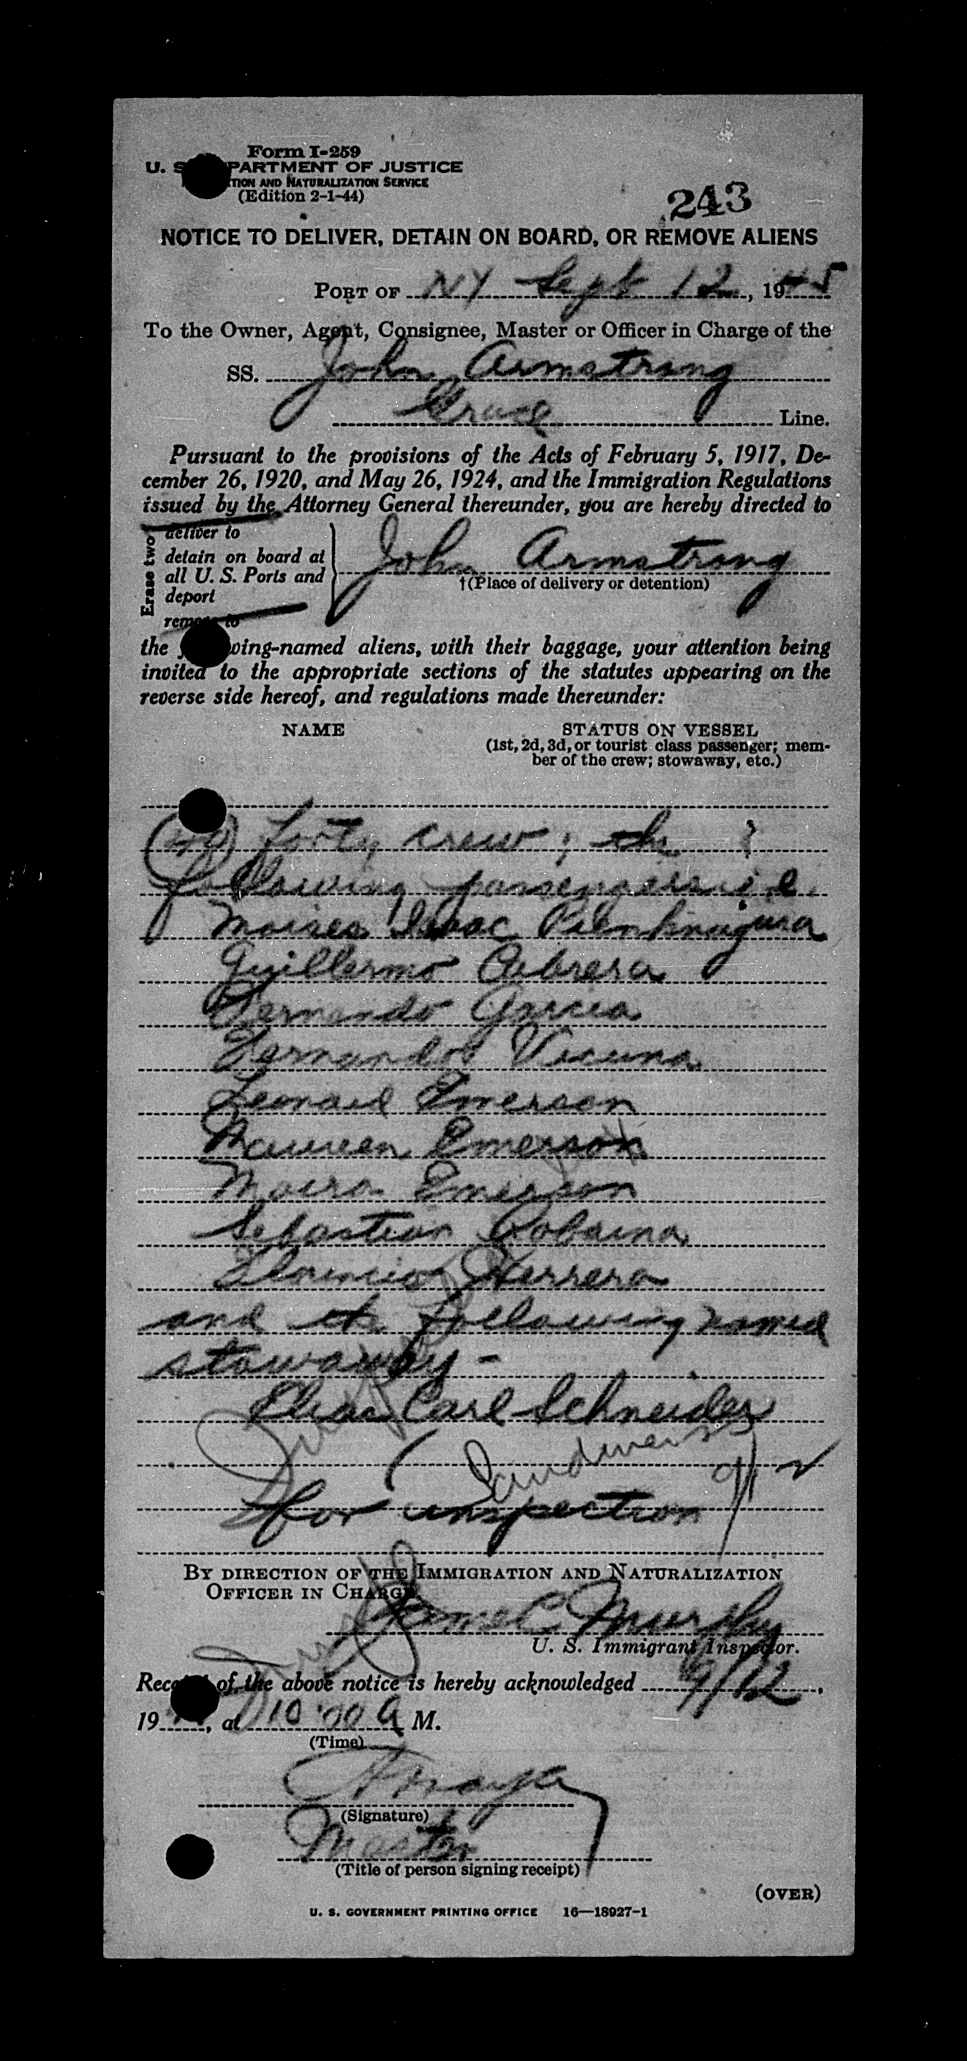 Form I-259
U. S. DEPARTMENT OF JUSTICE
IMMIGRATION AND NATURALIZATION SERVICE
(Edition 2-1-44)
243
NOTICE TO DELIVER, DETAIN ON BOARD, OR REMOVE ALIENS
PORT OF NY Sept 12, 1945
To the Owner, Agent, Consignee, Master or Officer in Charge of the
SS. John Armstrong
Grace Line.
Pursuant to the provisions of the Acts of February 5, 1917, De-
cember 26, 1920, and May 26, 1924, and the Immigration Regulations
issued by the Attorney General thereunder, you are hereby directed to
Erase two
deliver to
detain on board at
all U. S. Ports and
deport
remove to
John Armstrong
†(Place of delivery or detention)
the following-named aliens, with their baggage, your attention being
invited to the appropriate sections of the statutes appearing on the
reverse side hereof, and regulations made thereunder:
NAME
STATUS ON VESSEL
(1st, 2d, 3d, or tourist class passenger; mem-
ber of the crew; stowaway, etc.)
(40) forty crew; the
following passengers i.e.
Moises Isaac
Guillermo Cabrera
Fernando Garcia
Fernando Vicuna
Leonard Emerson
Maureen Emerson
Moira Emerson
Sebastian Robaina
Florencio Herrera
and the following named
stowaway -
Elias Carl Schneider
9/12
for inspection
BY DIRECTION OF THE IMMIGRATION AND NATURALIZATION
OFFICER IN CHARGE
James C Murphy
U. S. Immigrant Inspector.
Receipt of the above notice is hereby acknowledged 9/12,
19, at 10:00 A M.
(Time)
(Signature)
Master
(Title of person signing receipt)
(OVER)
U. S. GOVERNMENT PRINTING OFFICE 16—18927-1